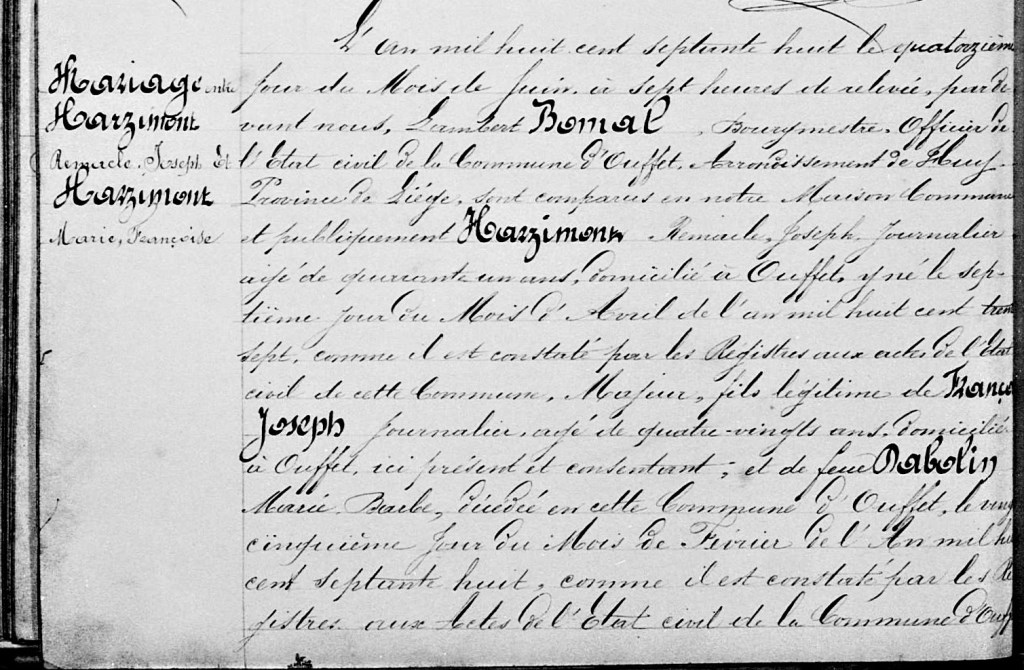 Mariage entre
Harzimont
Remacle, Joseph Et
Harzimont
Marie, Françoise
L'An mil huit cent septante huit le quatorzième
jour du Mois de Juin, à sept heures de relevée, par de
vant nous, Lambert Bomal, Bourgmestre, Officier de
l'Etat civil de la Commune d'Ouffet, Arrondissement de Huy,
Province de Liége, sont comparus en notre Maison Commune
et publiquement Harzimont Remacle, Joseph, Journalier
agé de quarante-un ans, domicilié à Ouffet, y né le sep-
tième jour du Mois d'Avril de l'an mil huit cent trente
sept, comme il est constaté par les Régistres aux actes de l'Etat
civil de cette Commune, Majeur, fils légitime de Franço
Joseph Journalier, agé de quatre-vingts ans, domicilié
à Ouffet, ici présent et consentant; et de feue Dabolin
Marie Barbe, décédée en cette Commune d'Ouffet, le ving
cinquième Jour du Mois de Février de l'An mil hu
cent septante huit, comme il est constaté par les Ré
gistres aux Actes de l'Etat civil de la Commune d'Ouff